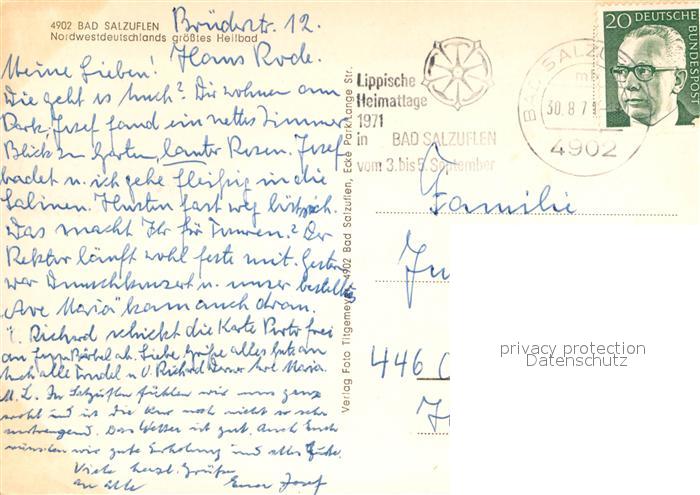 4902 BAD SALZUFLEN
Nordwestdeutschlands größtes Heilbad
Brüderstr. 12.
Hans Rode.
Meine Lieben!
Wie geht es Euch? Wir wohnen am
Park, Josef fand ein nettes Zimmer
Blick zu Garten, lauter Rosen. Josef
badet u. ich gehe fleißig in die
Salinen. Husten fast weg
Was macht Ihr für Touren? Der
Rektor läuft wohl feste mit. Gestern
war Wunschkonzert u. unser bestelltes
"Ave Maria" kam auch dran.
Richard schickt die Karte Porto frei
an ab. Liebe Grüße alles Gute an
Euch alle Maria.
M. L. In Salzuflen fühlen wir uns ganz
wohl und ist die Kur noch nicht so sehr
anstrengend. Das Wetter ist gut. Auch Euch
wünschen wir gute Erholung und alles Gute.
Viele herzl. Grüße
an alle Euer Josef
Verlag Foto Titgemeyer, 4902 Bad Salzuflen, Ecke Park/Lange Str.
Lippische
Heimattage
1971
in BAD SALZUFLEN
vom 3. bis 5. September
BAD SALZU
30.8.71
4902
20 DEUTSCHE BUNDESPOST
Familie
446
privacy protection
Datenschutz